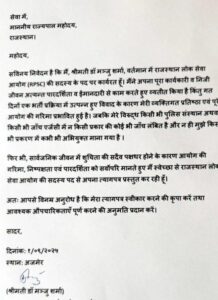 सेवा में,
माननीय राज्यपाल महोदय,
राजस्थान।
महोदय,
सविनय निवेदन है कि मैं, श्रीमती डॉ मञ्जु शर्मा, वर्तमान में राजस्थान लोक सेवा
आयोग (RPSC) की सदस्य के पद पर कार्यरत हूँ। मैंने अपना पूरा कार्यकारी व निजी
जीवन अत्यन्त पारदर्शिता व ईमानदारी से काम करते हुए व्यतीत किया है किंतु गत
दिनों एक भर्ती प्रक्रिया में उत्पन्न हुए विवाद के कारण मेरी व्यक्तिगत प्रतिष्ठा एवं पूरे
आयोग की गरिमा प्रभावित हुई है। जबकि मेरे विरुद्ध किसी भी पुलिस संस्थान अथवा
किसी भी जाँच एजेंसी में न किसी प्रकार की कोई भी जाँच लंबित है और न ही मुझे किसी
भी प्रकरण में कभी भी अभियुक्त माना गया है ।
फिर भी, सार्वजनिक जीवन में शुचिता की सदैव पक्षधर होने के कारण आयोग की
गरिमा, निष्पक्षता एवं पारदर्शिता को सर्वोपरि मानते हुए मैं स्वेच्छा से राजस्थान लोक
सेवा आयोग की सदस्य पद से अपना त्यागपत्र प्रस्तुत कर रही हूँ।
अतः आपसे विनम्र अनुरोध है कि मेरा त्यागपत्र स्वीकार करने की कृपा करें तथा
आवश्यक औपचारिकताएँ पूर्ण करने की अनुमति प्रदान करें।
सादर,
दिनांक: १/०९/२०२५
स्थान: अजमेर
(श्रीमती डॉ मञ्जु शर्मा)